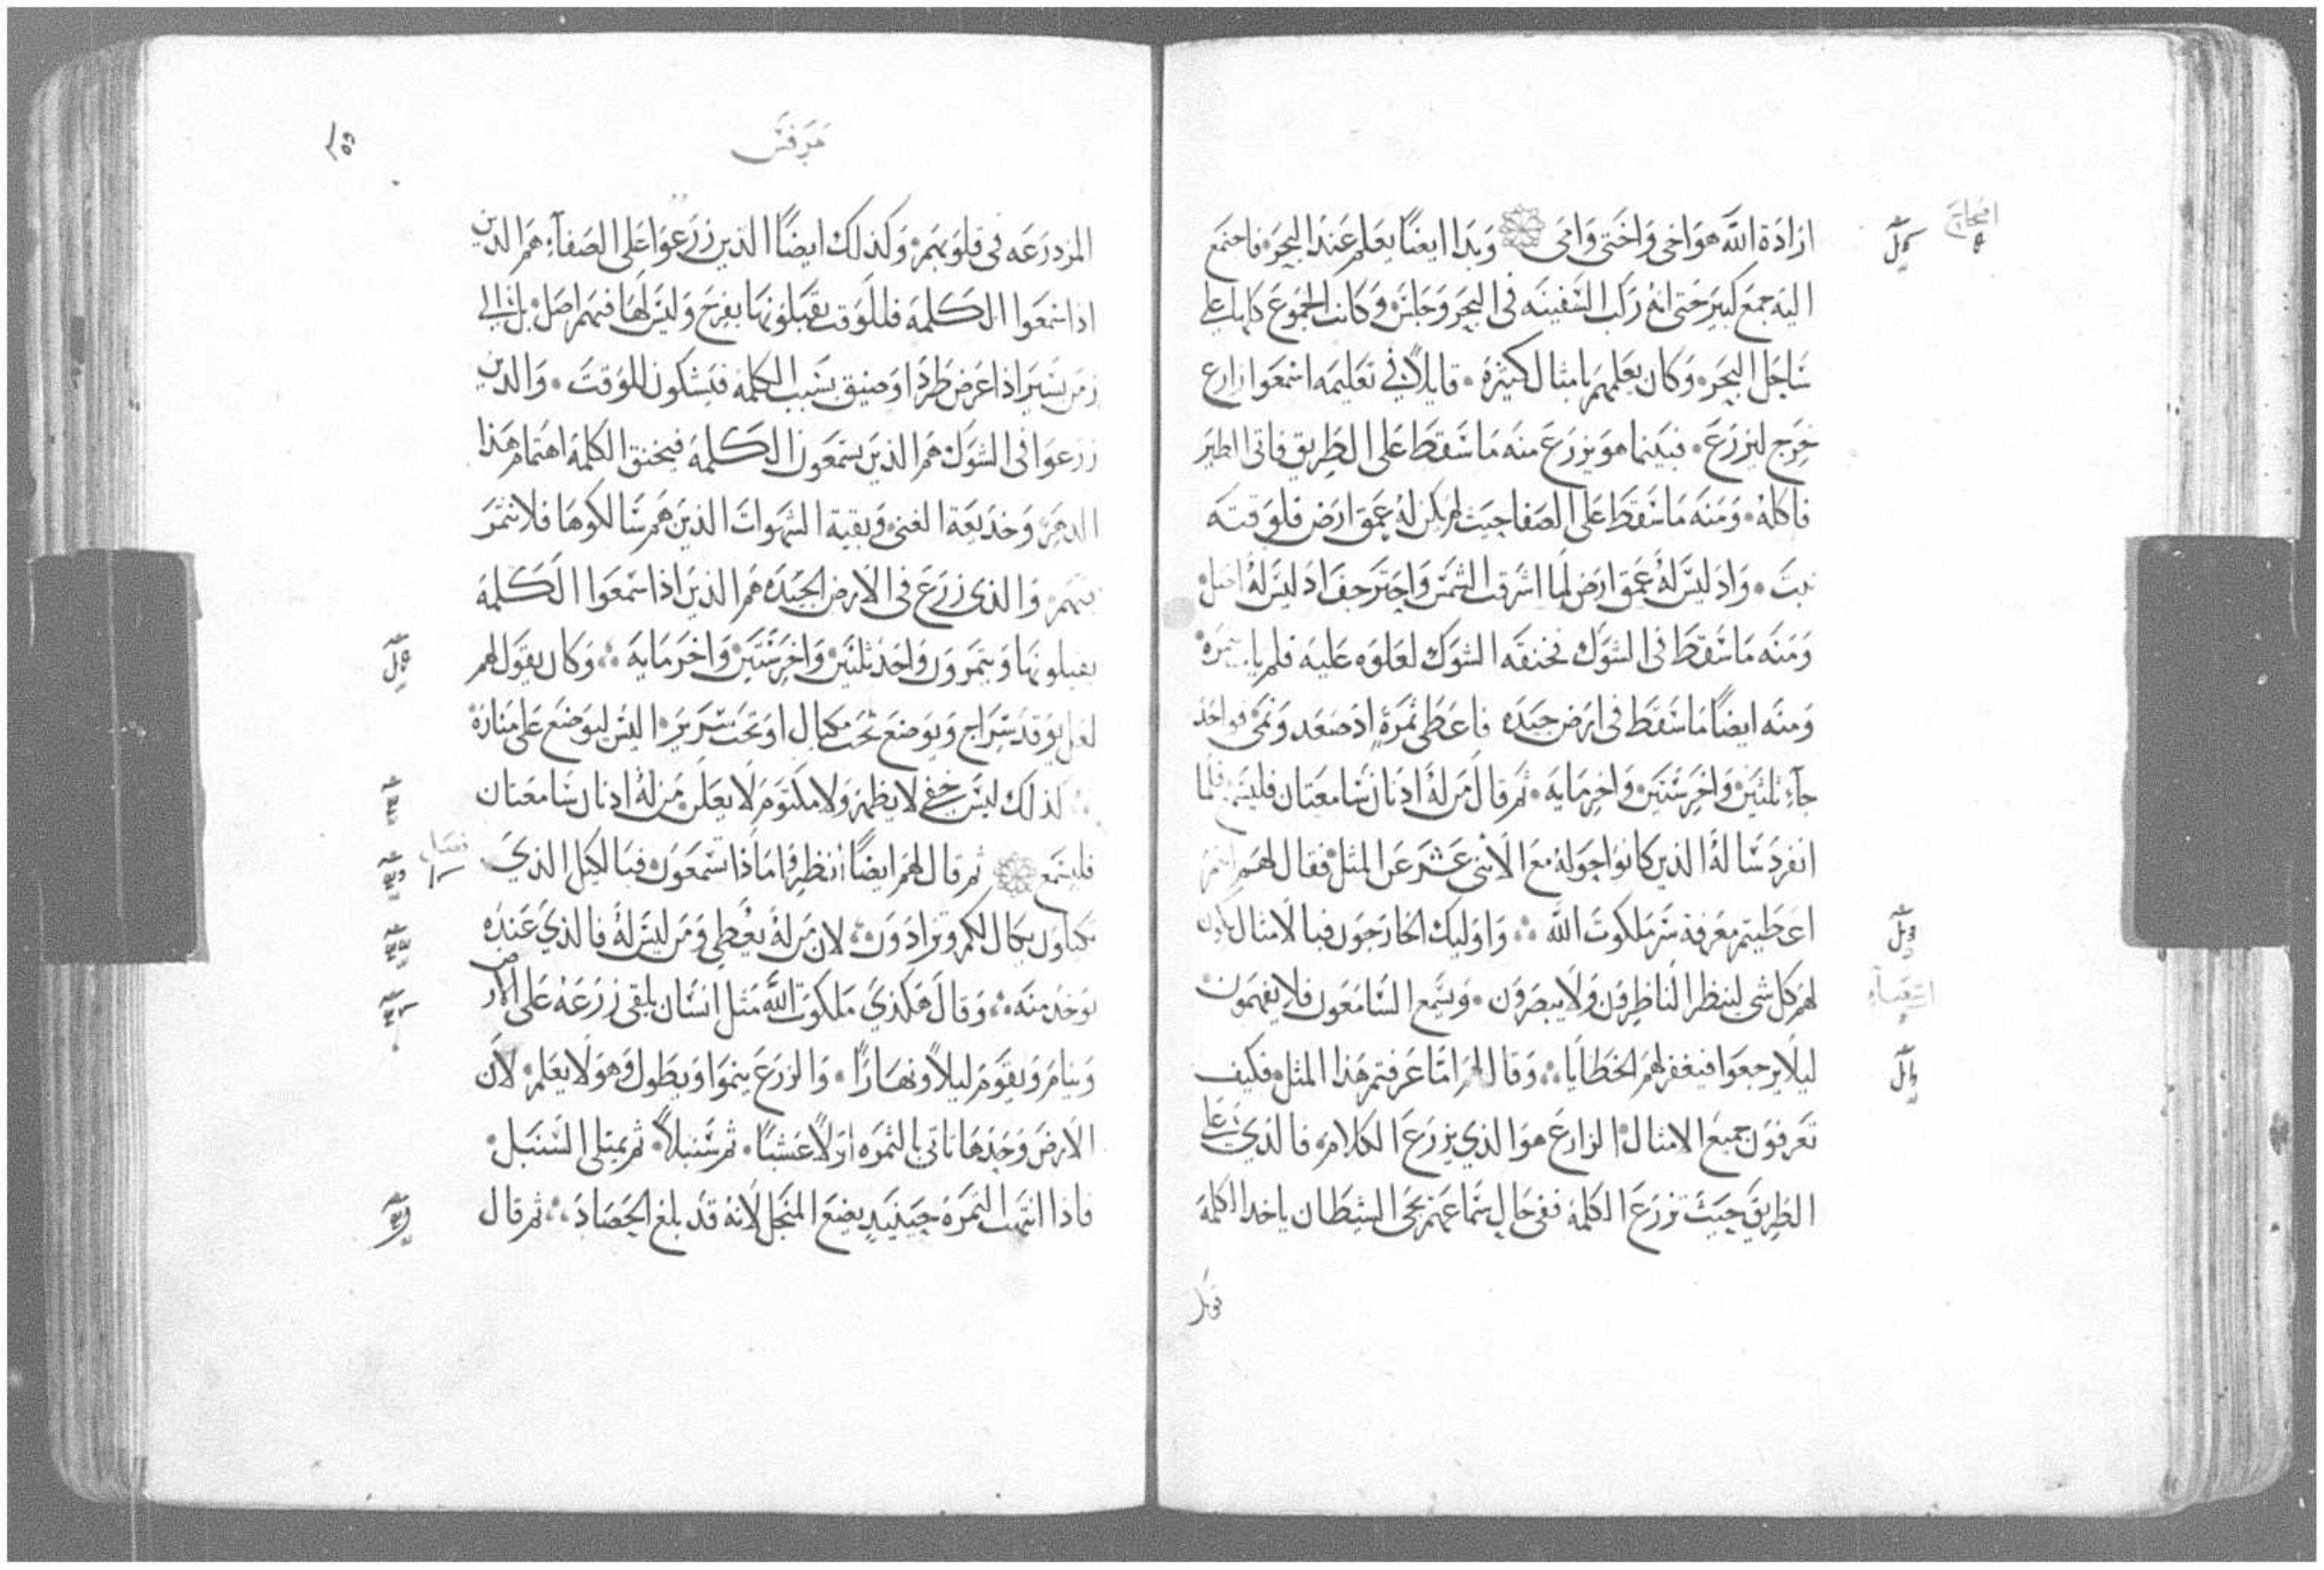 اصحاح
ارادة الله هو اخى واختى وامى وبدا ايضًا يعلم عند البحر فاجتمع
اليه جمع كبير حتى انه ركب السفينه فى البحر وجلس وكانت الجموع كلها على
ساحل البحر وكان يعلمهم بامثال كثيرة قايلاً فى تعليمه اسمعوا زارع
خرج ليزرع فبينما هو يزرع منه ما سقط على الطريق فاتى الطير
فاكله ومنه ما سقط على الصفا حيث لم يكن له عمق ارض فلوقته
نبت واذ ليس له عمق ارض لما اشرقت الشمس واحتر جف اذ ليس له اصل
ومنه ما سقط فى الشوك فخنقه الشوك لعلوه عليه فلم يات بثمرة
ومنه ايضًا ما سقط فى ارض جيده فاعطى ثمرةٍ اذ صعد ونمى فواحد
جآء ثلثين واخر ستين واخر مايه ثم قال من له اذنان سامعتان فليسمع فلما
انفرد ساله الذين كانوا حوله مع الاثنى عشر عن المثل فقال لهم انتم
اعطيتم معرفة سر ملكوت الله واوليك الخارجون فبالامثال يكون
لهم كل شى لينظر الناظرون ولا يبصرون ويسمع السامعون فلا يفهمون
ليلا يرجعوا فيغفر لهم الخطايا وقال لهم اما عرفتم هذا المثل فكيف
تعرفون جميع الامثال الزارع هو الذي يزرع الكلام فالذي على
الطريق حيث تزرع الكلمة ففى حال سماعهم يجى الشيطان ياخد الكلمة
قوبل
مرقس
المزدرعه فى قلوبهم وكذلك ايضًا الذين زرعوا على الصفآء هم الذين
اذا سمعوا الكلمة فللوقت يقبلونها بفرح وليس لها فيهم اصل بل الى
زمن يسير اذا عرض طرد او ضيق بسبب الكلمة فيشكون للوقت والذين
زرعوا فى الشوك هم الذين يسمعون الكلمة فيخنق الكلمة اهتمام هذا
الدهر وخديعة الغنى وبقية الشهوات الذين هم سالكوها فلا تثمر
فيهم والذى زرع فى الارض الجيده هم الذين اذا سمعوا الكلمة
يقبلونها ويثمرون واحد ثلثين واخر ستين واخر مايه وكان يقول لهم
لعل يوقد سراج ويوضع تحت مكيال او تحت سرير اليس ليوضع على منارة
كذلك ليس خفى لا يظهر ولا مكتوم لا يعلن من له اذنان سامعتان
فليسمع ثم قال لهم ايضًا انظروا ماذا تسمعون فبالكيل الذي
تكيلون يكال لكم وتزادون لان من له يعطى ومن ليس له فالذي عنده
يوخد منه وقال هكذي ملكوت الله مثل انسان يلقى زرعه على الارض
وينام ويقوم ليلاً ونهارًا والزرع ينموا ويطول وهو لا يعلم لان
الارض وحدها تاتى بالثمره اولاً عشبًا ثم سنبلاً ثم يمتلى السنبل
فاذا انتهت الثمرة حينيد يضع المنجل لانه قد بلغ الحصاد ثم قال